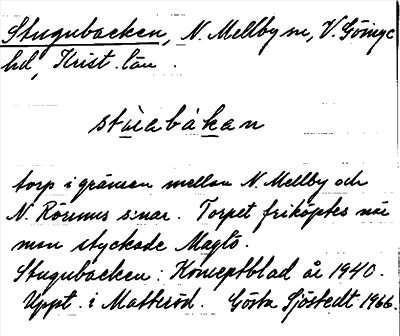 Stugubacken, N. Mellby sn, V. Göinge
hd, Krist. län.
stùabàkan
torp i gränsen mellan N. Mellby och
N. Rörums s:nar. Torpet friköptes när
man styckade Maglö.
Stugubacken: Konceptblad år 1940.
Uppt. i Matteröd. Gösta Sjöstedt 1966.